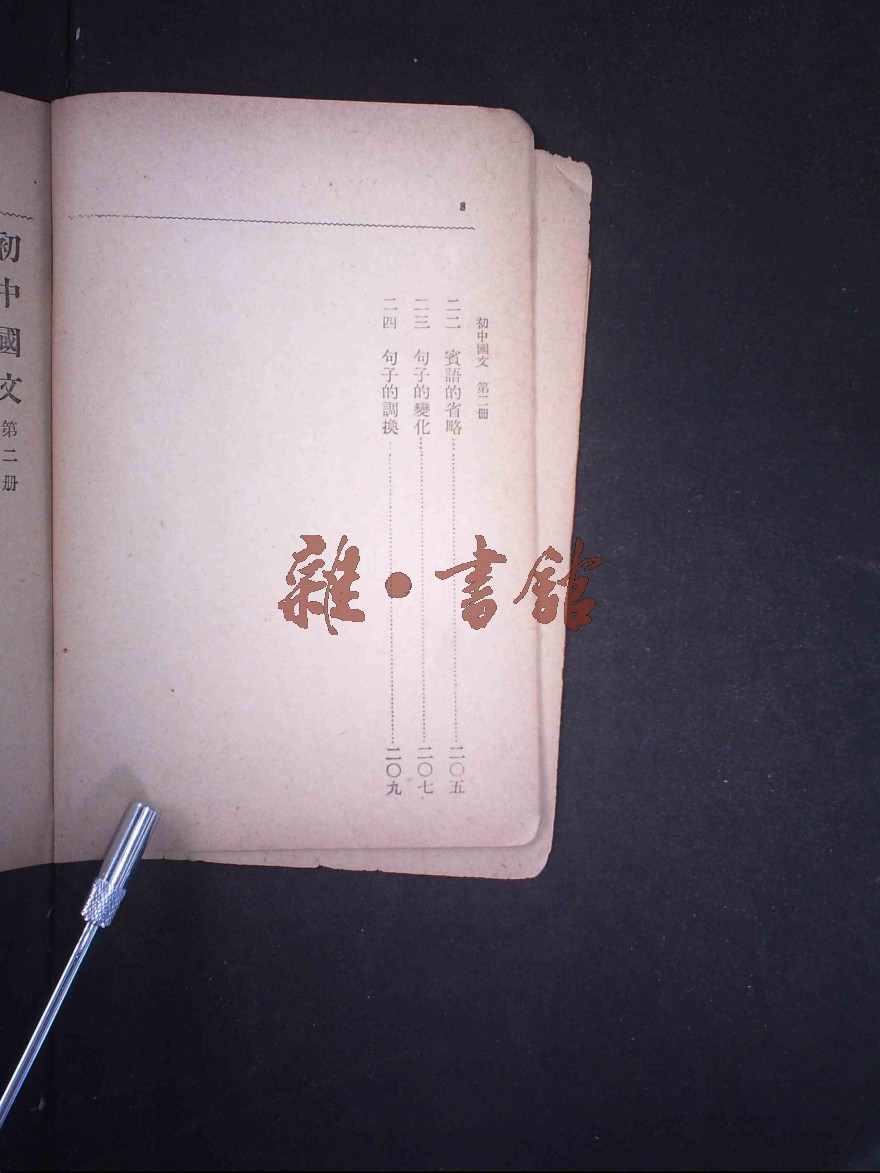 8
初中國文 第二冊
二二 賓語的省略 二〇五
二三 句子的變化 二〇七
二四 句子的調換 二〇九
初中國文 第二册
雜・書館